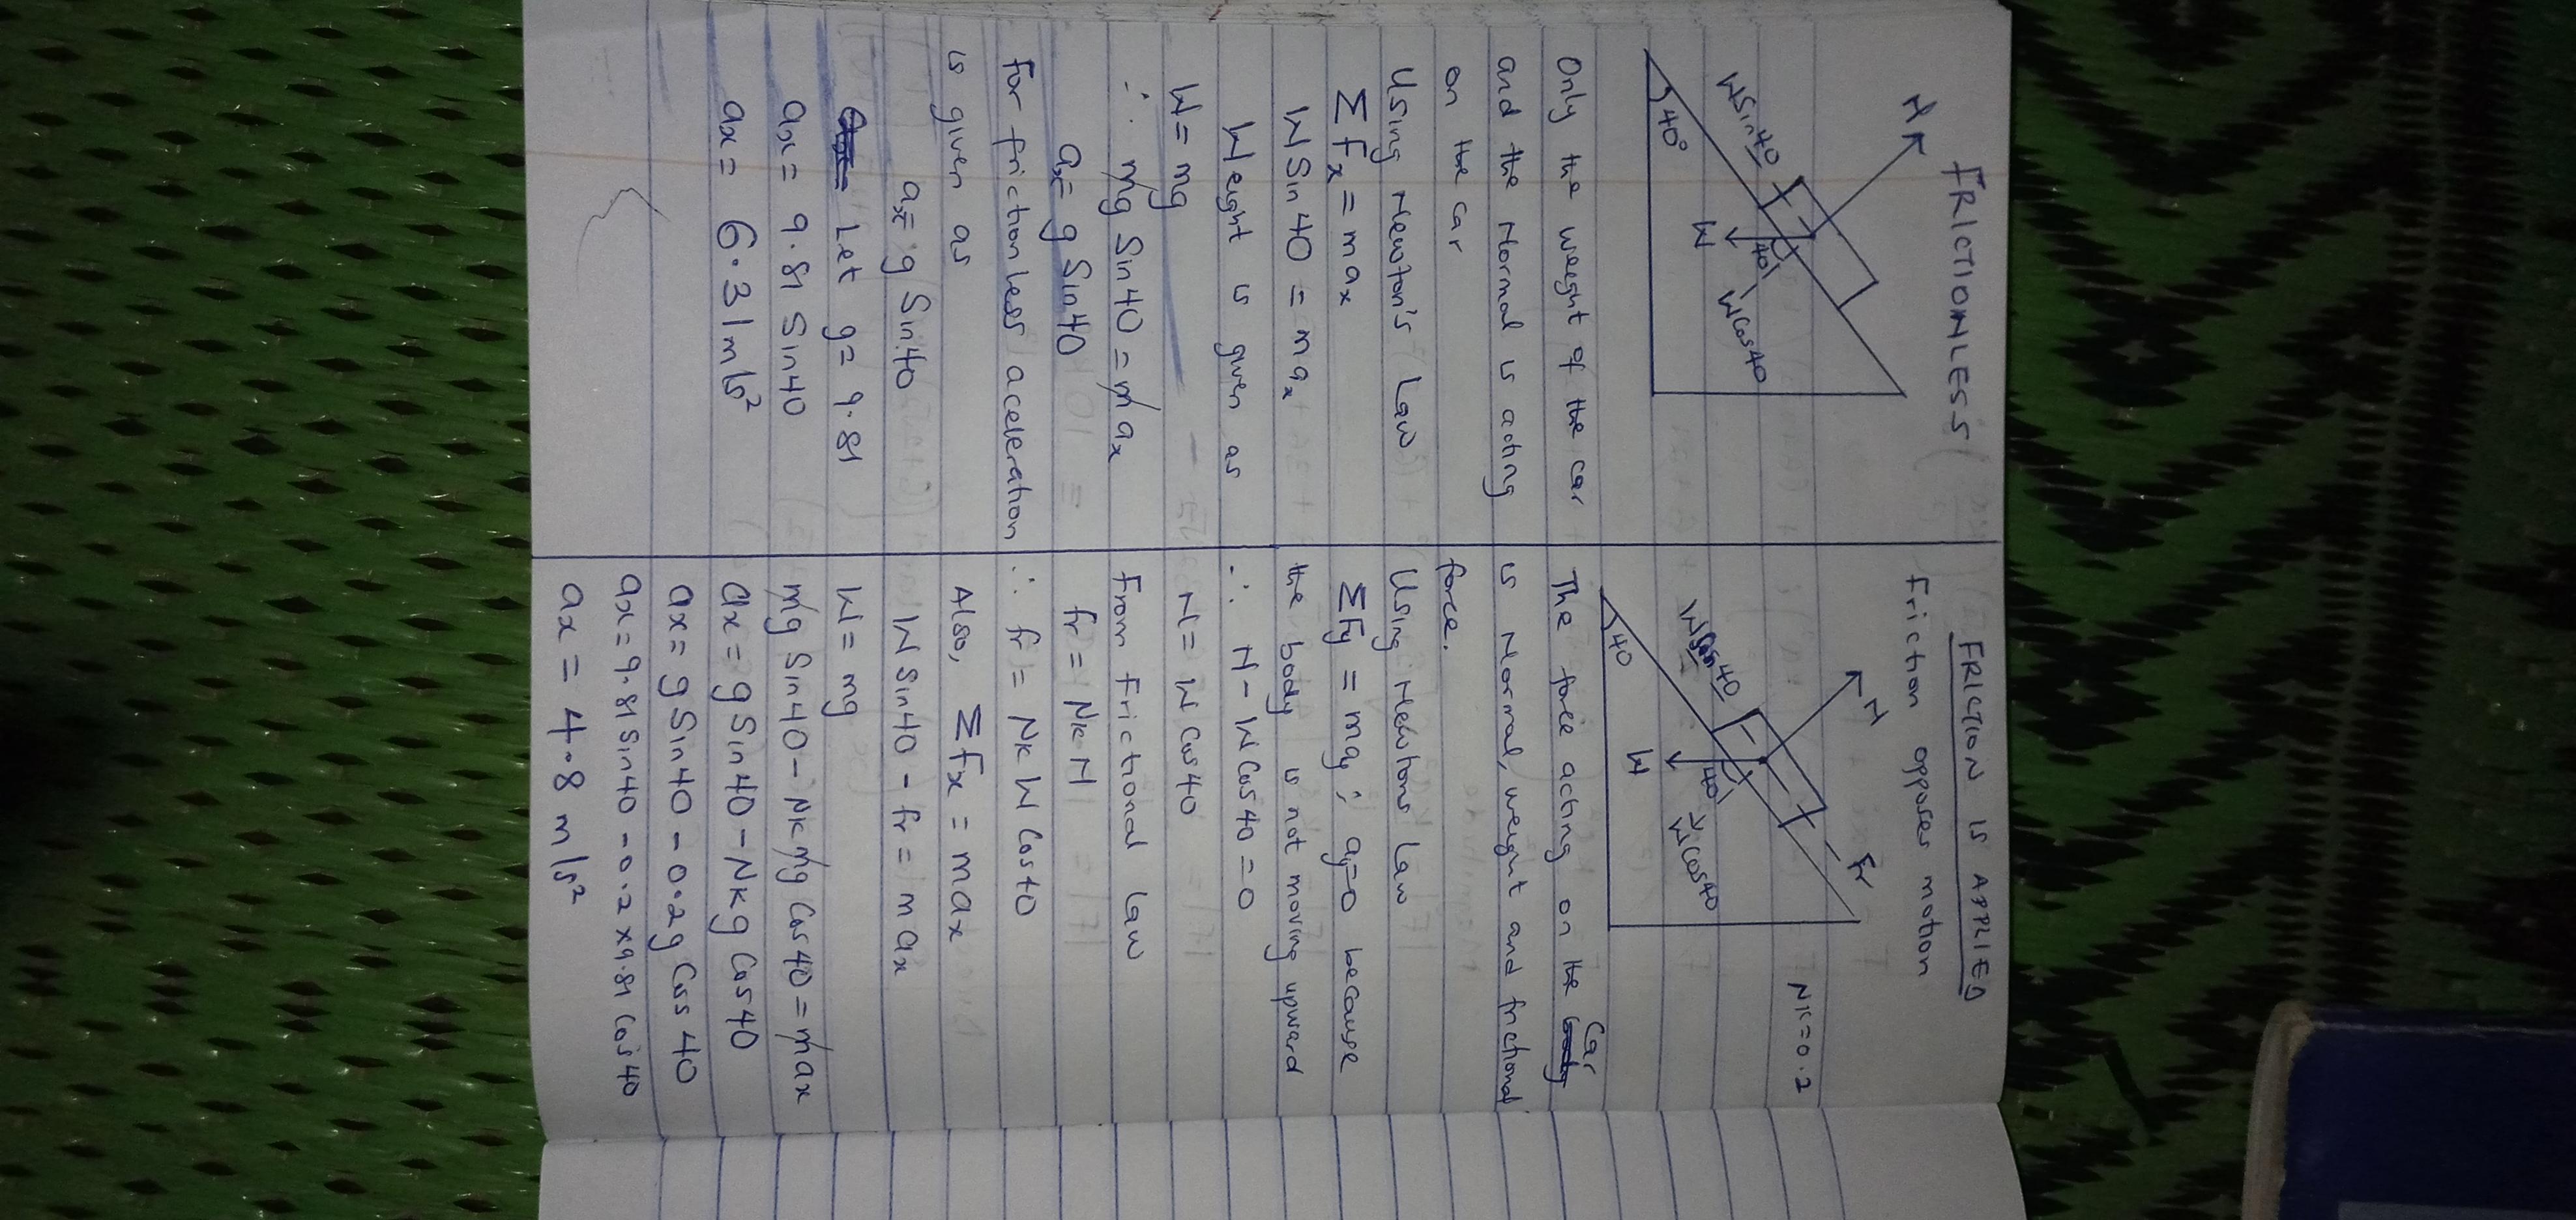 FRICTIONLESS
N
WSin40
40°
40
W
WCos40
Only the weight of the car
and the Normal is acting
on the car
Using Newton's Law
ΣFx = max
WSin40 = max
Weight is given as
W = mg
∴ mg Sin40 = max
ax = g Sin40
For frictionless aceleration
is given as
ax = g Sin40
Let g = 9.81
ax = 9.81 Sin40
ax = 6.31m/s²
FRICTION IS APPLIED
Friction opposes motion
Nk = 0.2
N
Fr
WSin40
40
40
W
WCos40
The force acting on the Car
is Normal, weight and frictional
force.
Using Newtons Law
ΣFy = may; ay=0 because
the body is not moving upward
∴ N - WCos40 = 0
N = W Cos40
From Frictional law
fr = Nk N
∴ fr = Nk W Cos40
Also, ΣFx = max
W Sin40 - fr = max
W = mg
mg Sin40 - Nk mg Cos40 = max
ax = g Sin40 - Nkg Cos40
ax = g Sin40 - 0.2g Cos40
ax = 9.81 Sin40 - 0.2 x9.81 Cos40
ax = 4.8 m/s²